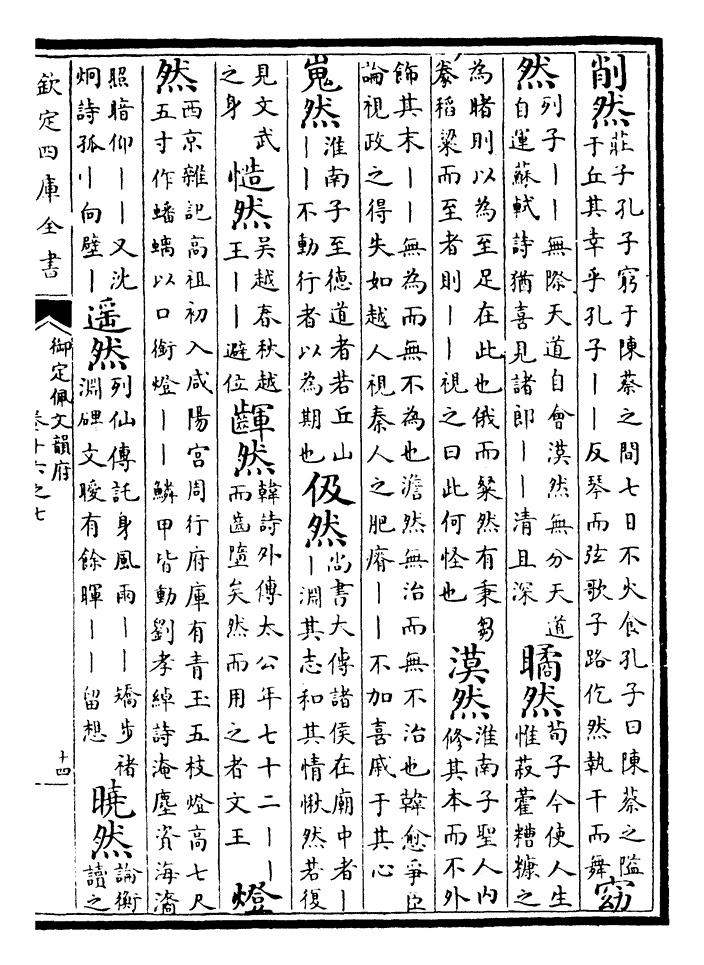 削然莊子孔子窮于陳蔡之間七日不火食孔子曰陳蔡之隘于丘其幸乎孔子丨丨反琴而弦歌子路仡然執干而舞窈
然列子丨丨無際天道自會漠然無分天道自運蘇軾詩猶喜見諸郎丨丨清且深瞲然荀子今使人生惟菽藿糟糠之
為睹則以為至足在此也俄而粲然有秉芻豢稻粱而至者則丨丨視之曰此何怪也漠然淮南子聖人内修其本而不外
飾其末丨丨無為而無不為也澹然無治而無不治也韓愈爭臣論視政之得失如越人視秦人之肥瘠丨丨不加喜戚于其心
嵬然淮南子至德道者若丘山丨丨不動行者以為期也伋然尚書大傳諸侯在廟中者丨丨淵其志和其情愀然若復
見文武之身慥然吳越春秋越王丨丨避位齳然韓詩外傳太公年七十二丨丨而齒墮矣然而用之者文王燈
然西京雜記高祖初入咸陽宮周行府庫有青玉五枝燈高七尺五寸作蟠螭以口銜燈丨丨鱗甲皆動劉孝綽詩淹塵資海滷
照暗仰丨丨又沈炯詩孤丨向壁丨遥然列仙傳託身風雨丨丨矯步褚淵碑文曖有餘暉丨丨留想曉然論衡讀之
欽定四庫全書
御定佩文韻府
卷十六之七
十四